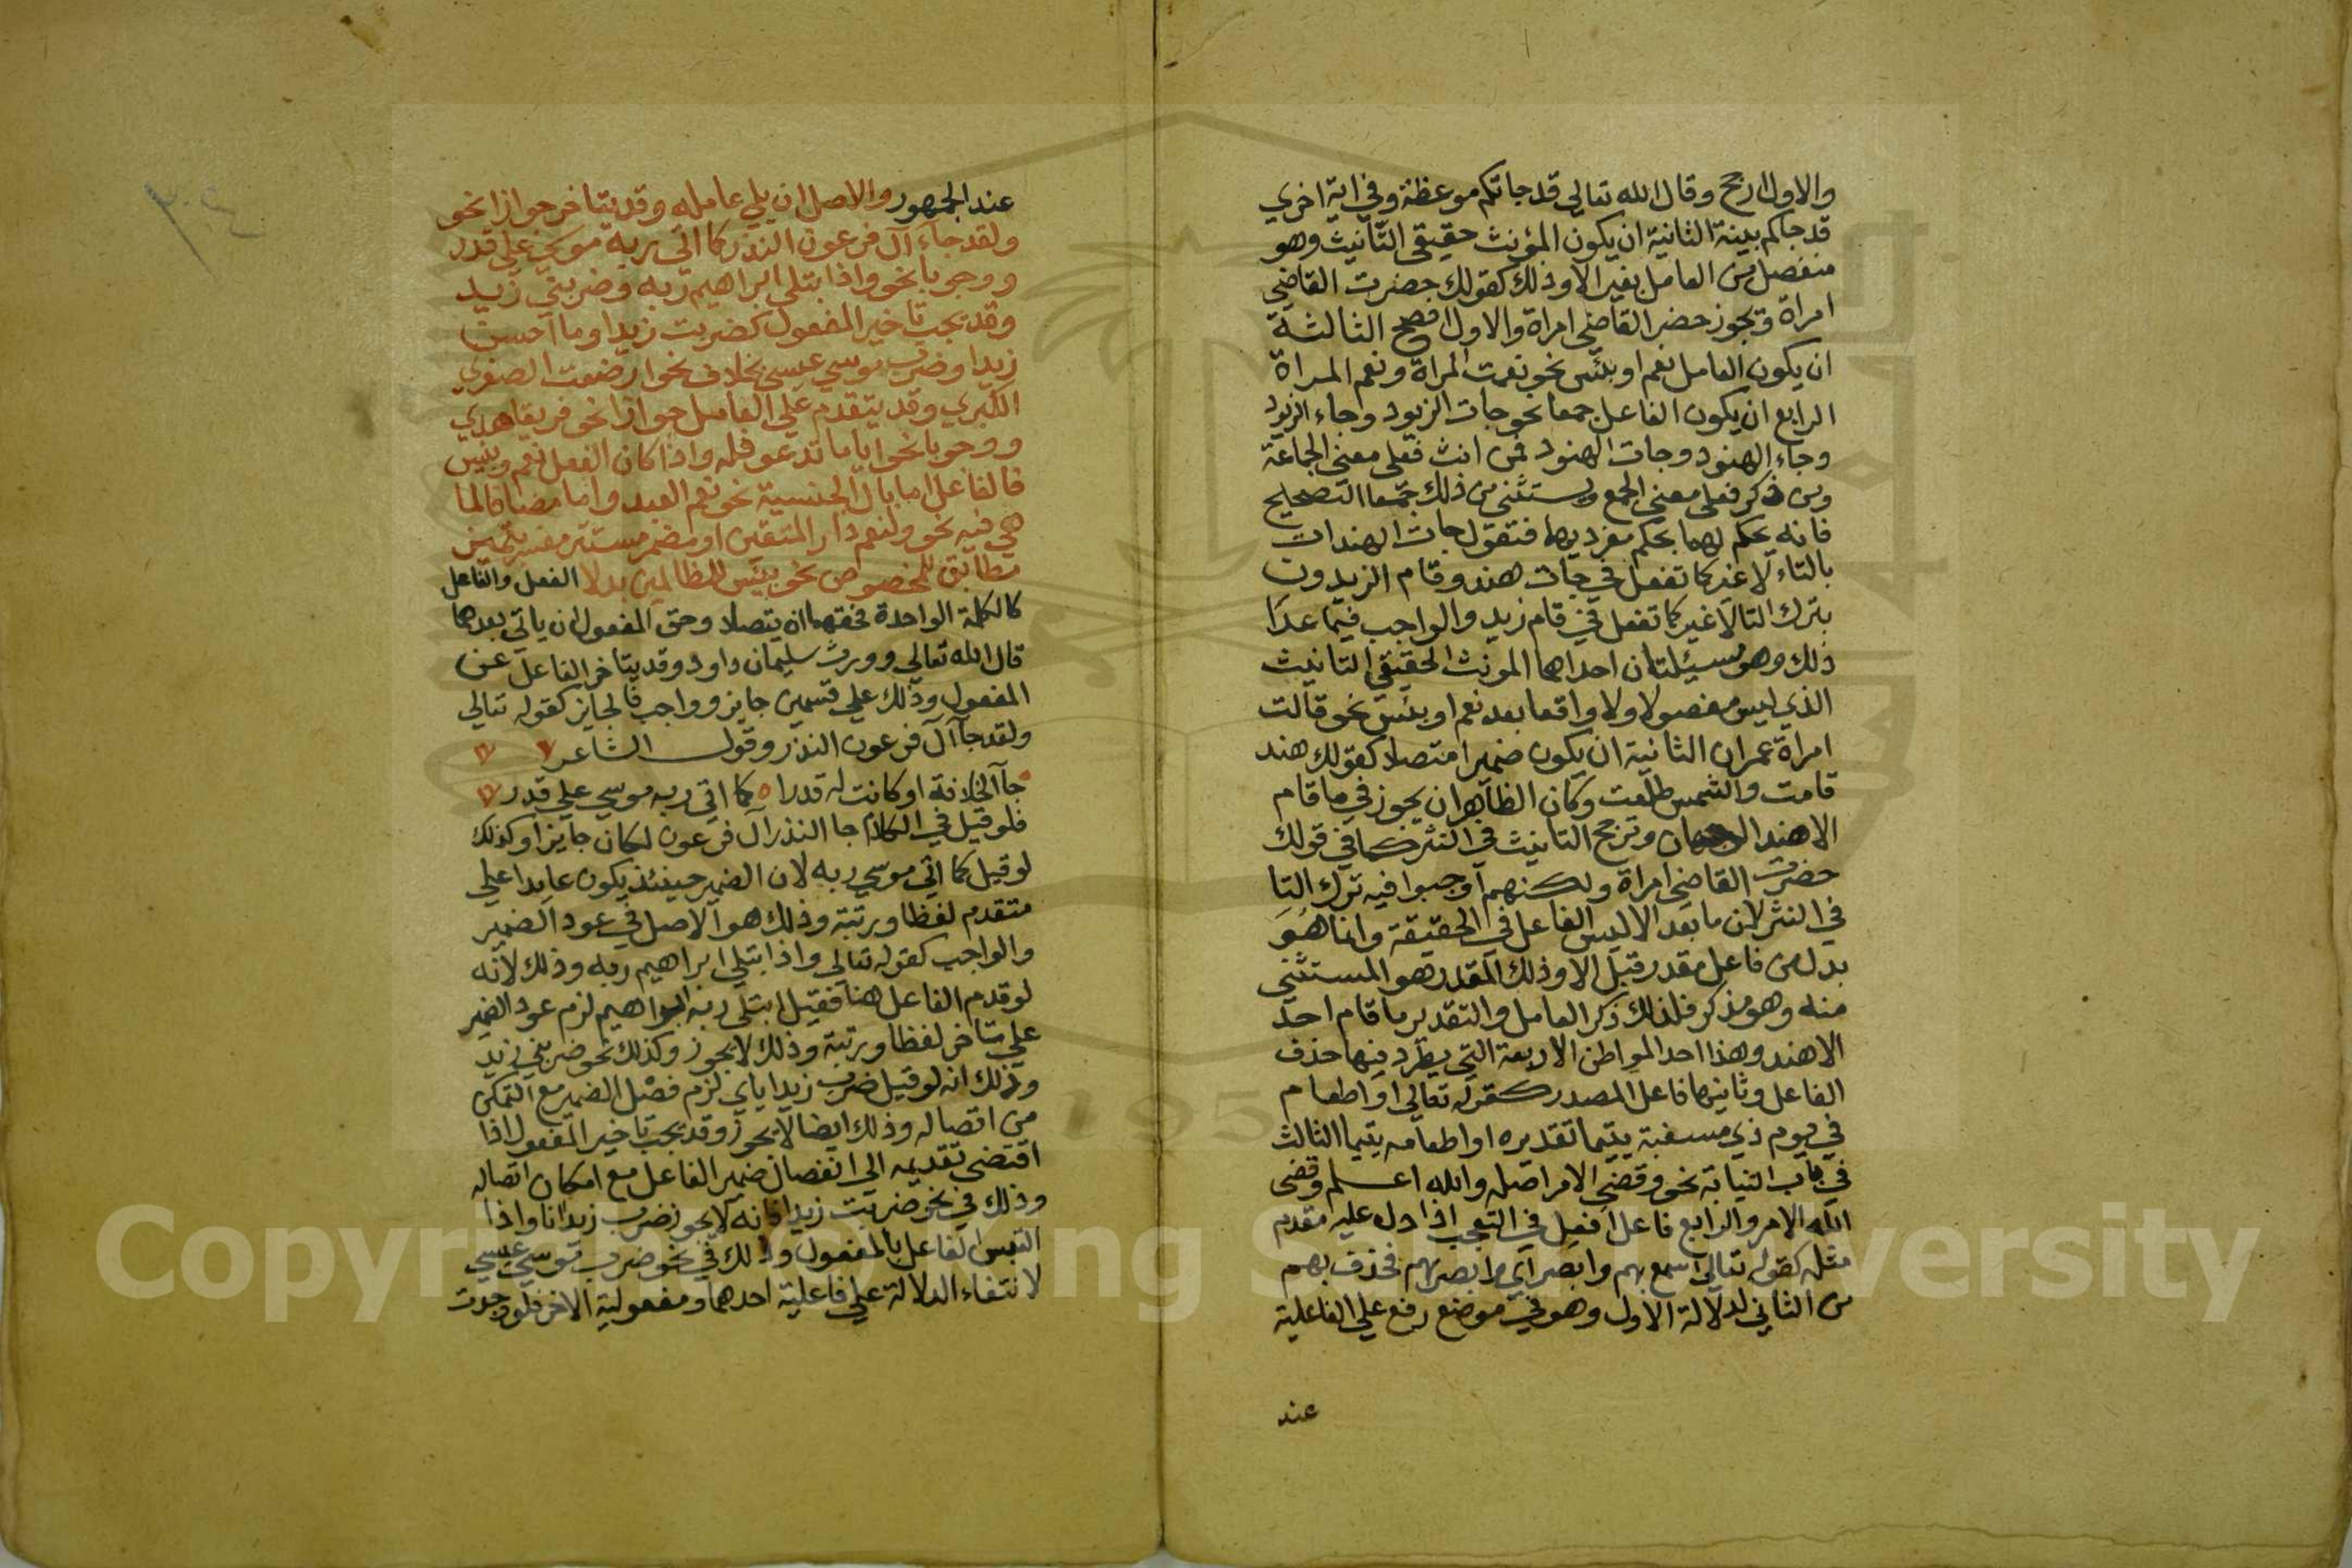 والاول ارجح وقال الله تعالي قد جاتكم موعظة وفي اية اخري
قد جاكم بينة الثانية ان يكون المؤنث حقيقي التانيث وهو
منفصل من العامل بغير الا وذلك كقولك حضرت القاضي
امراة ويجوز حضر القاضي امراة والاول افصح الثالثة
ان يكون العامل نعم او بئس نحو نعمت المراة ونعم المراة
الرابع ان يكون الفاعل جمعا نحو جات الزيود وجاء الزيود
وجاء الهنود وجات الهنود فمن انث فعلي معني الجماعة
ومن ذكر فعلي معني الجمع ويستثني من ذلك جمعا التصحيح
فانه يحكم لهما بحكم مفرديهما فتقول جات الهندات
بالتاء لا غير كما تفعل في جات هند وقام الزيدون
بترك التا لا غير كما تفعل في قام زيد والواجب فيما عدا
ذلك وهو مسيلتان احداهما المونث الحقيقي التانيث
الذي ليس مفصولا ولا واقعا بعد نعم او بئس نحو قالت
امراة عمران الثانية ان يكون ضميرا متصلا كقولك هند
قامت والشمس طلعت وكان الظاهر ان يجوز في ما قام
الا هند الوجهان وترجح التانيث في النثر كما في قولك
حضرت القاضي امراة ولكنهم اوجبوا فيه ترك التا
في النثر لان ما بعد الا ليس الفاعل في الحقيقة وانما هو
بدل من فاعل مقدر قبل الا وذلك المقدر هو المستثني
منه وهو مذكر فلذلك ذكر العامل والتقدير ما قام احد
الا هند وهذا احد المواطن الاربعة التي يطرد فيها حذف
الفاعل وثانيها فاعل المصدر كقوله تعالي او اطعام
في يوم ذي مسغبة يتيما تقديره او اطعامه يتيما الثالث
في باب النيابة نحو وقضي الامر اصله والله اعلم وقضي
الله الامر والرابع فاعل افعل في التعجب اذا دل عليه مقدم
مثله كقوله تعالي اسمع بهم وابصر اي وابصر بهم فحذف بهم
من الثاني لدلالة الاول وهو في موضع رفع علي الفاعلية
عند
عند الجمهور والاصل ان يلي عامله وقد يتاخر جوازا نحو
ولقد جاء آل فرعون النذر كما اتي ربه موسي علي قدر
ووجوبا نحو واذ ابتلي ابراهيم ربه وضربني زيد
وقد يجب تاخير المفعول كضربت زيدا وما احسن
زيدا وضرب موسي عيسي بخلاف نحو ارضعت الصغري
الكبري وقد يتقدم علي العامل جوازا نحو فريقا هدي
ووجوبا نحو اياما تدعو فله واذا كان الفعل نعم وبئس
فالفاعل اما بال الجنسية نحو نعم العبد واما مضافا لما
هي فيه نحو ولنعم دار المتقين او مضمر مستتر مفسر بتمييز
مطابق للمخصوص نحو بئس للظالمين بدلا الفعل والفاعل
كالكلمة الواحدة فحقهما ان يتصلا وحق المفعول ان ياتي بعدهما
قال الله تعالي وورث سليمان داود وقد يتاخر الفاعل عن
المفعول وذلك علي قسمين جايز وواجب فالجايز كقوله تعالي
ولقد جا آل فرعون النذر وقول الشاعر
جا الخلافة او كانت له قدرا ه كما اتي ربه موسي علي قدر
فلو قيل في الكلام جا النذر آل فرعون لكان جايزا وكذلك
لو قيل كما اتي موسي ربه لان الضمير حينئذ يكون عايدا علي
متقدم لفظا ورتبة وذلك هو الاصل في عود الضمير
والواجب كقوله تعالي واذ ابتلي ابراهيم ربه وذلك لانه
لو قدم الفاعل هنا فقيل ابتلي ربه ابراهيم لزم عود الضمير
علي متاخر لفظا ورتبة وذلك لا يجوز وكذلك نحو ضربني زيد
وذلك انه لو قيل ضرب زيد اياي لزم فصل الضمير مع التمكن
من اتصاله وذلك ايضا لا يجوز وقد يجب تاخير المفعول اذا
اقتضي تقديمه الي انفصال ضمير الفاعل مع امكان اتصاله
وذلك في نحو ضربت زيدا فانه لا يجوز ضرب زيدا انا واذا
التبس الفاعل بالمفعول وذلك في نحو ضرب موسي عيسي
لانتفاء الدلالة علي فاعلية احدهما ومفعولية الاخر فلو وجدت